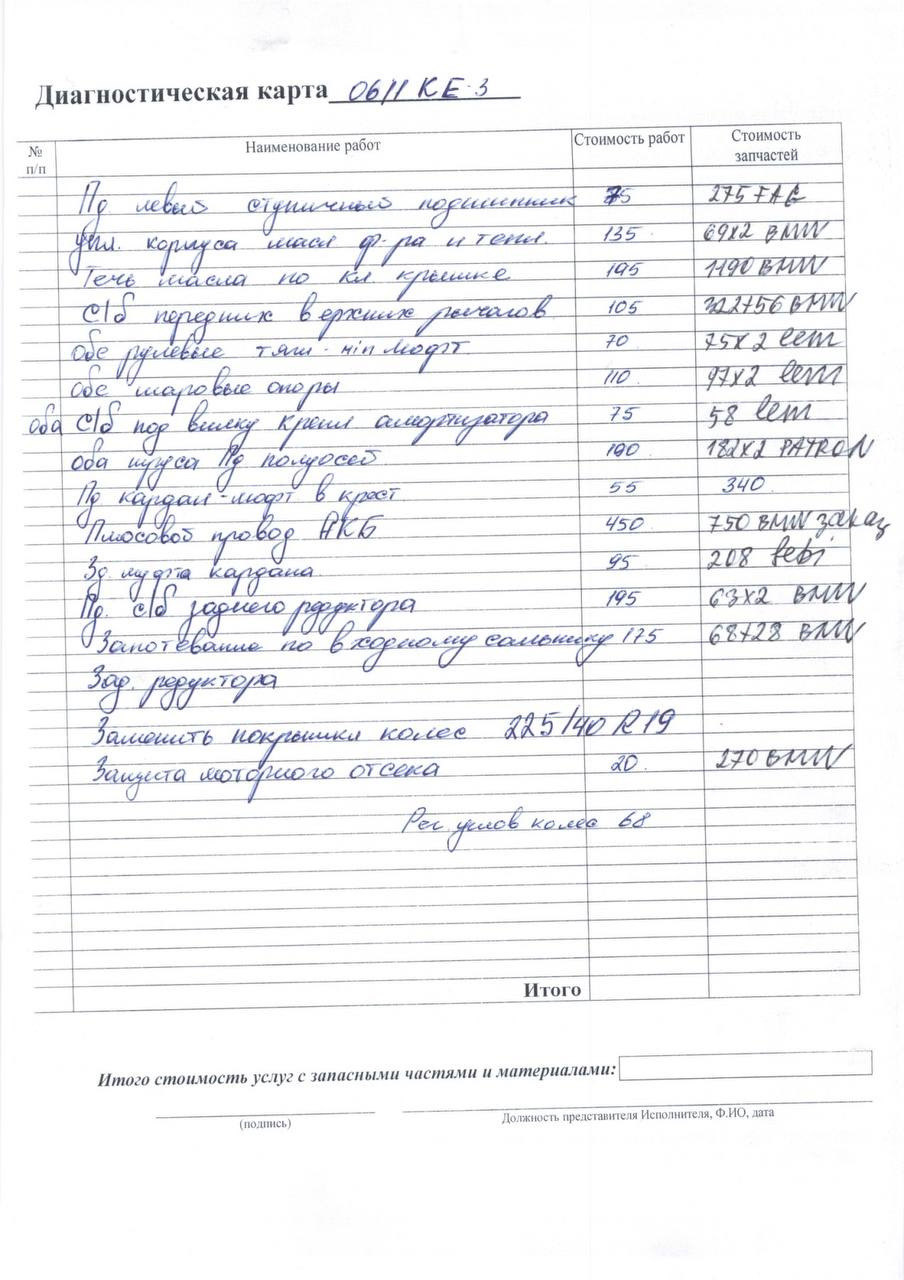 Диагностическая карта 0611 КЕ-3
№ п/п Наименование работ Стоимость работ Стоимость запчастей
Пд левый ступичный подшипник 75 275 FAG
упл. корпуса масл ф-ра и тепл. 135 69x2 BMW
Течь масла по кл крышке 195 1190 BMW
С/б передних верхних рычагов 105 322+56 BMW
Обе рулевые тяги - min люфт 70 75x2 lem
Обе шаровые опоры 110 97x2 lem
оба С/б под вилку крепл амортизатора 75 58 lem
оба шруса Пд полуосей 190 182x2 PATRON
Пд кардан - люфт в крест 55 340
Плюсовой провод АКБ 450 750 BMW заказ
Зд муфта кардана 95 208 febi
Пд. с/б заднего редуктора 195 63x2 BMW
Запотевание по входному сальнику 175 68+28 BMW
Зад. редуктора
Заменить покрышки колес 225/40 R19
Защита моторного отсека 20 270 BMW
Рег. углов колес 68
Итого
Итого стоимость услуг с запасными частями и материалами:
(подпись) Должность представителя Исполнителя, Ф.ИО, дата